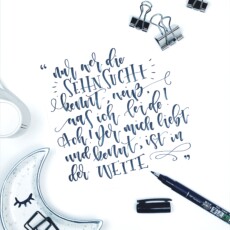 "nur wer die
SEHNSUCHT
kennt, weiß,
was ich leide!
Ach! Der mich liebt
und kennt, ist in
der WEITE"